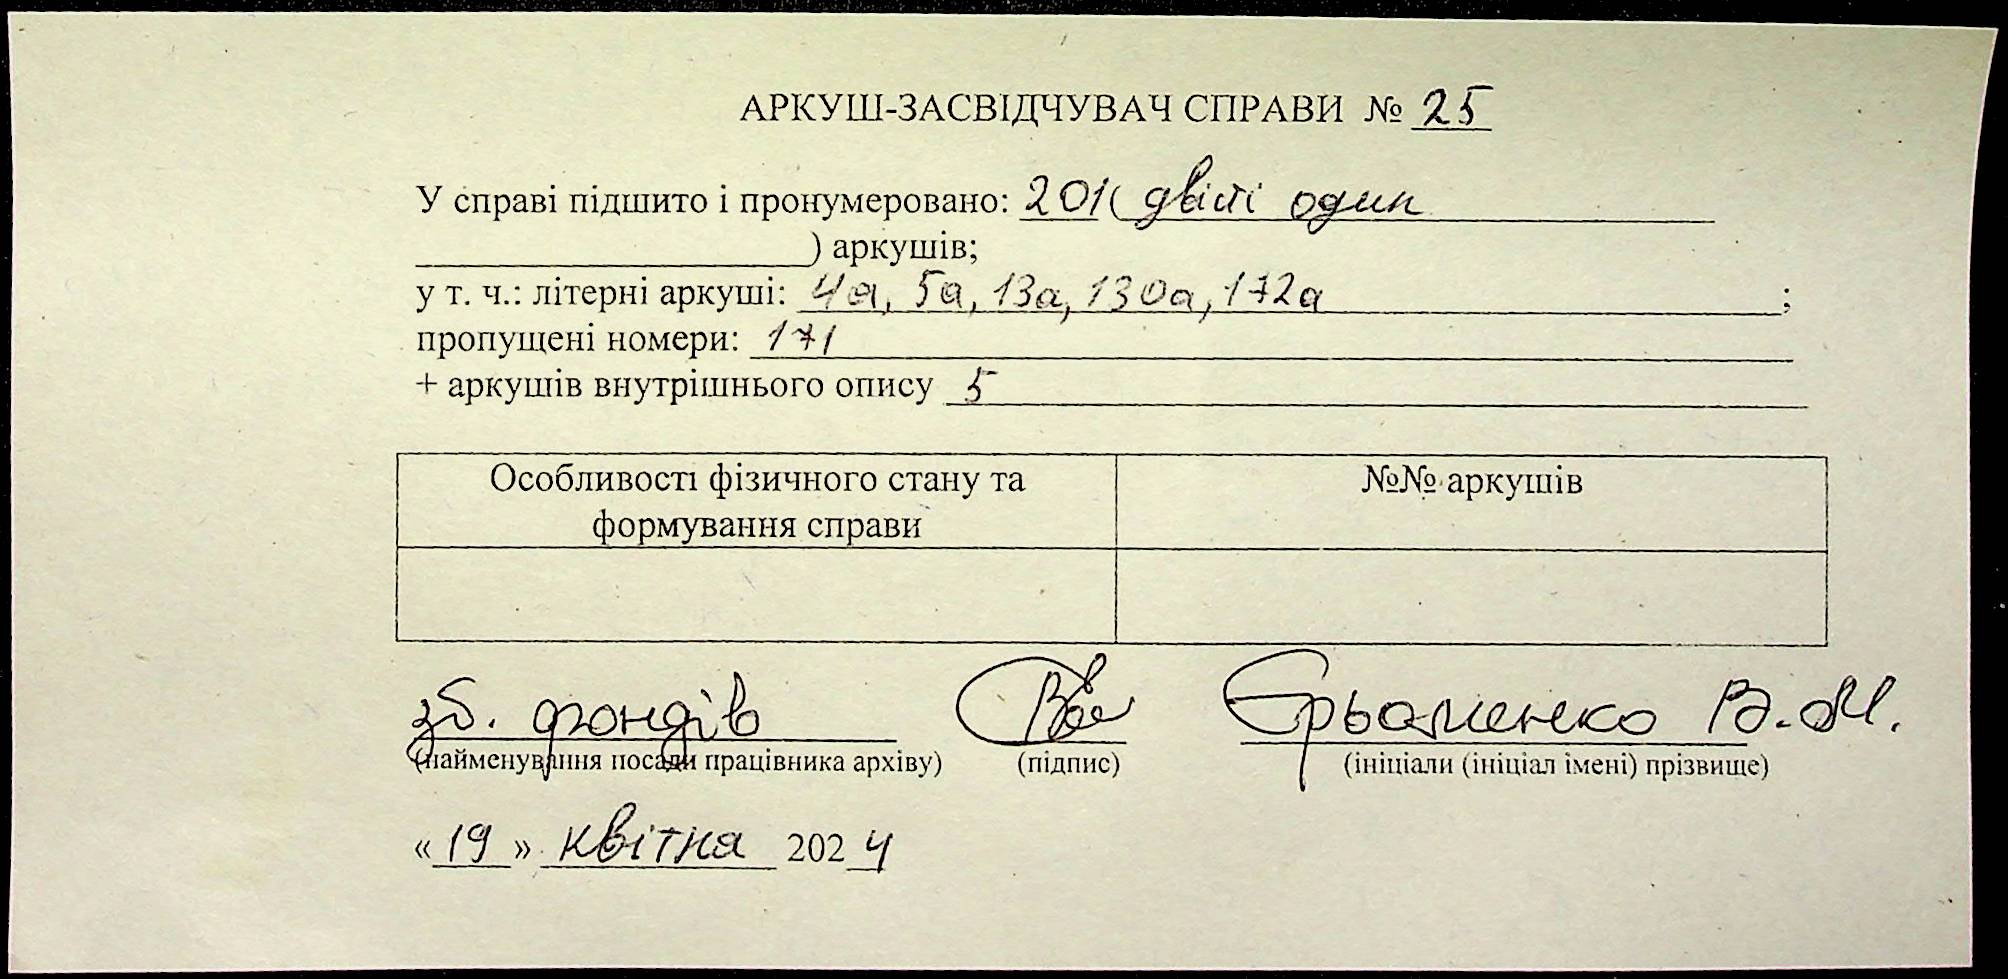 АРКУШ-ЗАСВІДЧУВАЧ СПРАВИ № 25
У справі підшито і пронумеровано: 201( двісті один
) аркушів;
у т. ч.: літерні аркуші: 4а, 5а, 13а, 130а, 172а ;
пропущені номери: 171
+ аркушів внутрішнього опису 5
Особливості фізичного стану та формування справи
№№ аркушів
зб. фондів
Єрьоменко В.М.
(найменування посади працівника архіву) (підпис) (ініціали (ініціал імені) прізвище)
« 19 » квітня 2024